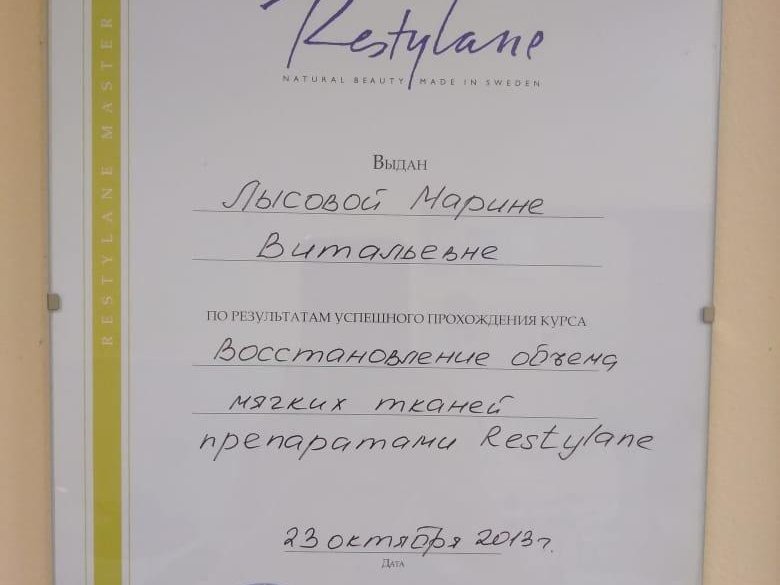 Restylane
NATURAL BEAUTY MADE IN SWEDEN
RESTYLANE MASTER
Выдан
Лысовой Марине
Витальевне
ПО РЕЗУЛЬТАТАМ УСПЕШНОГО ПРОХОЖДЕНИЯ КУРСА
Восстановление объема
мягких тканей
препаратами Restylane
23 октября 2013г.
Дата